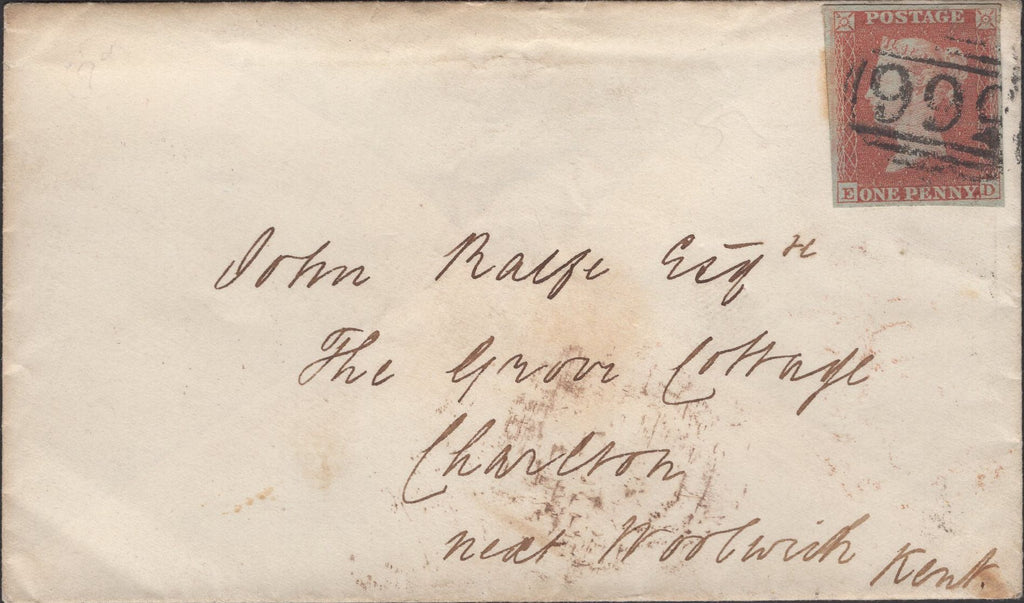 POSTAGE
999
E ONE PENNY. D
John Ralfe Esqre
The Grove Cottage
Charlton
next Woolwich Kent.